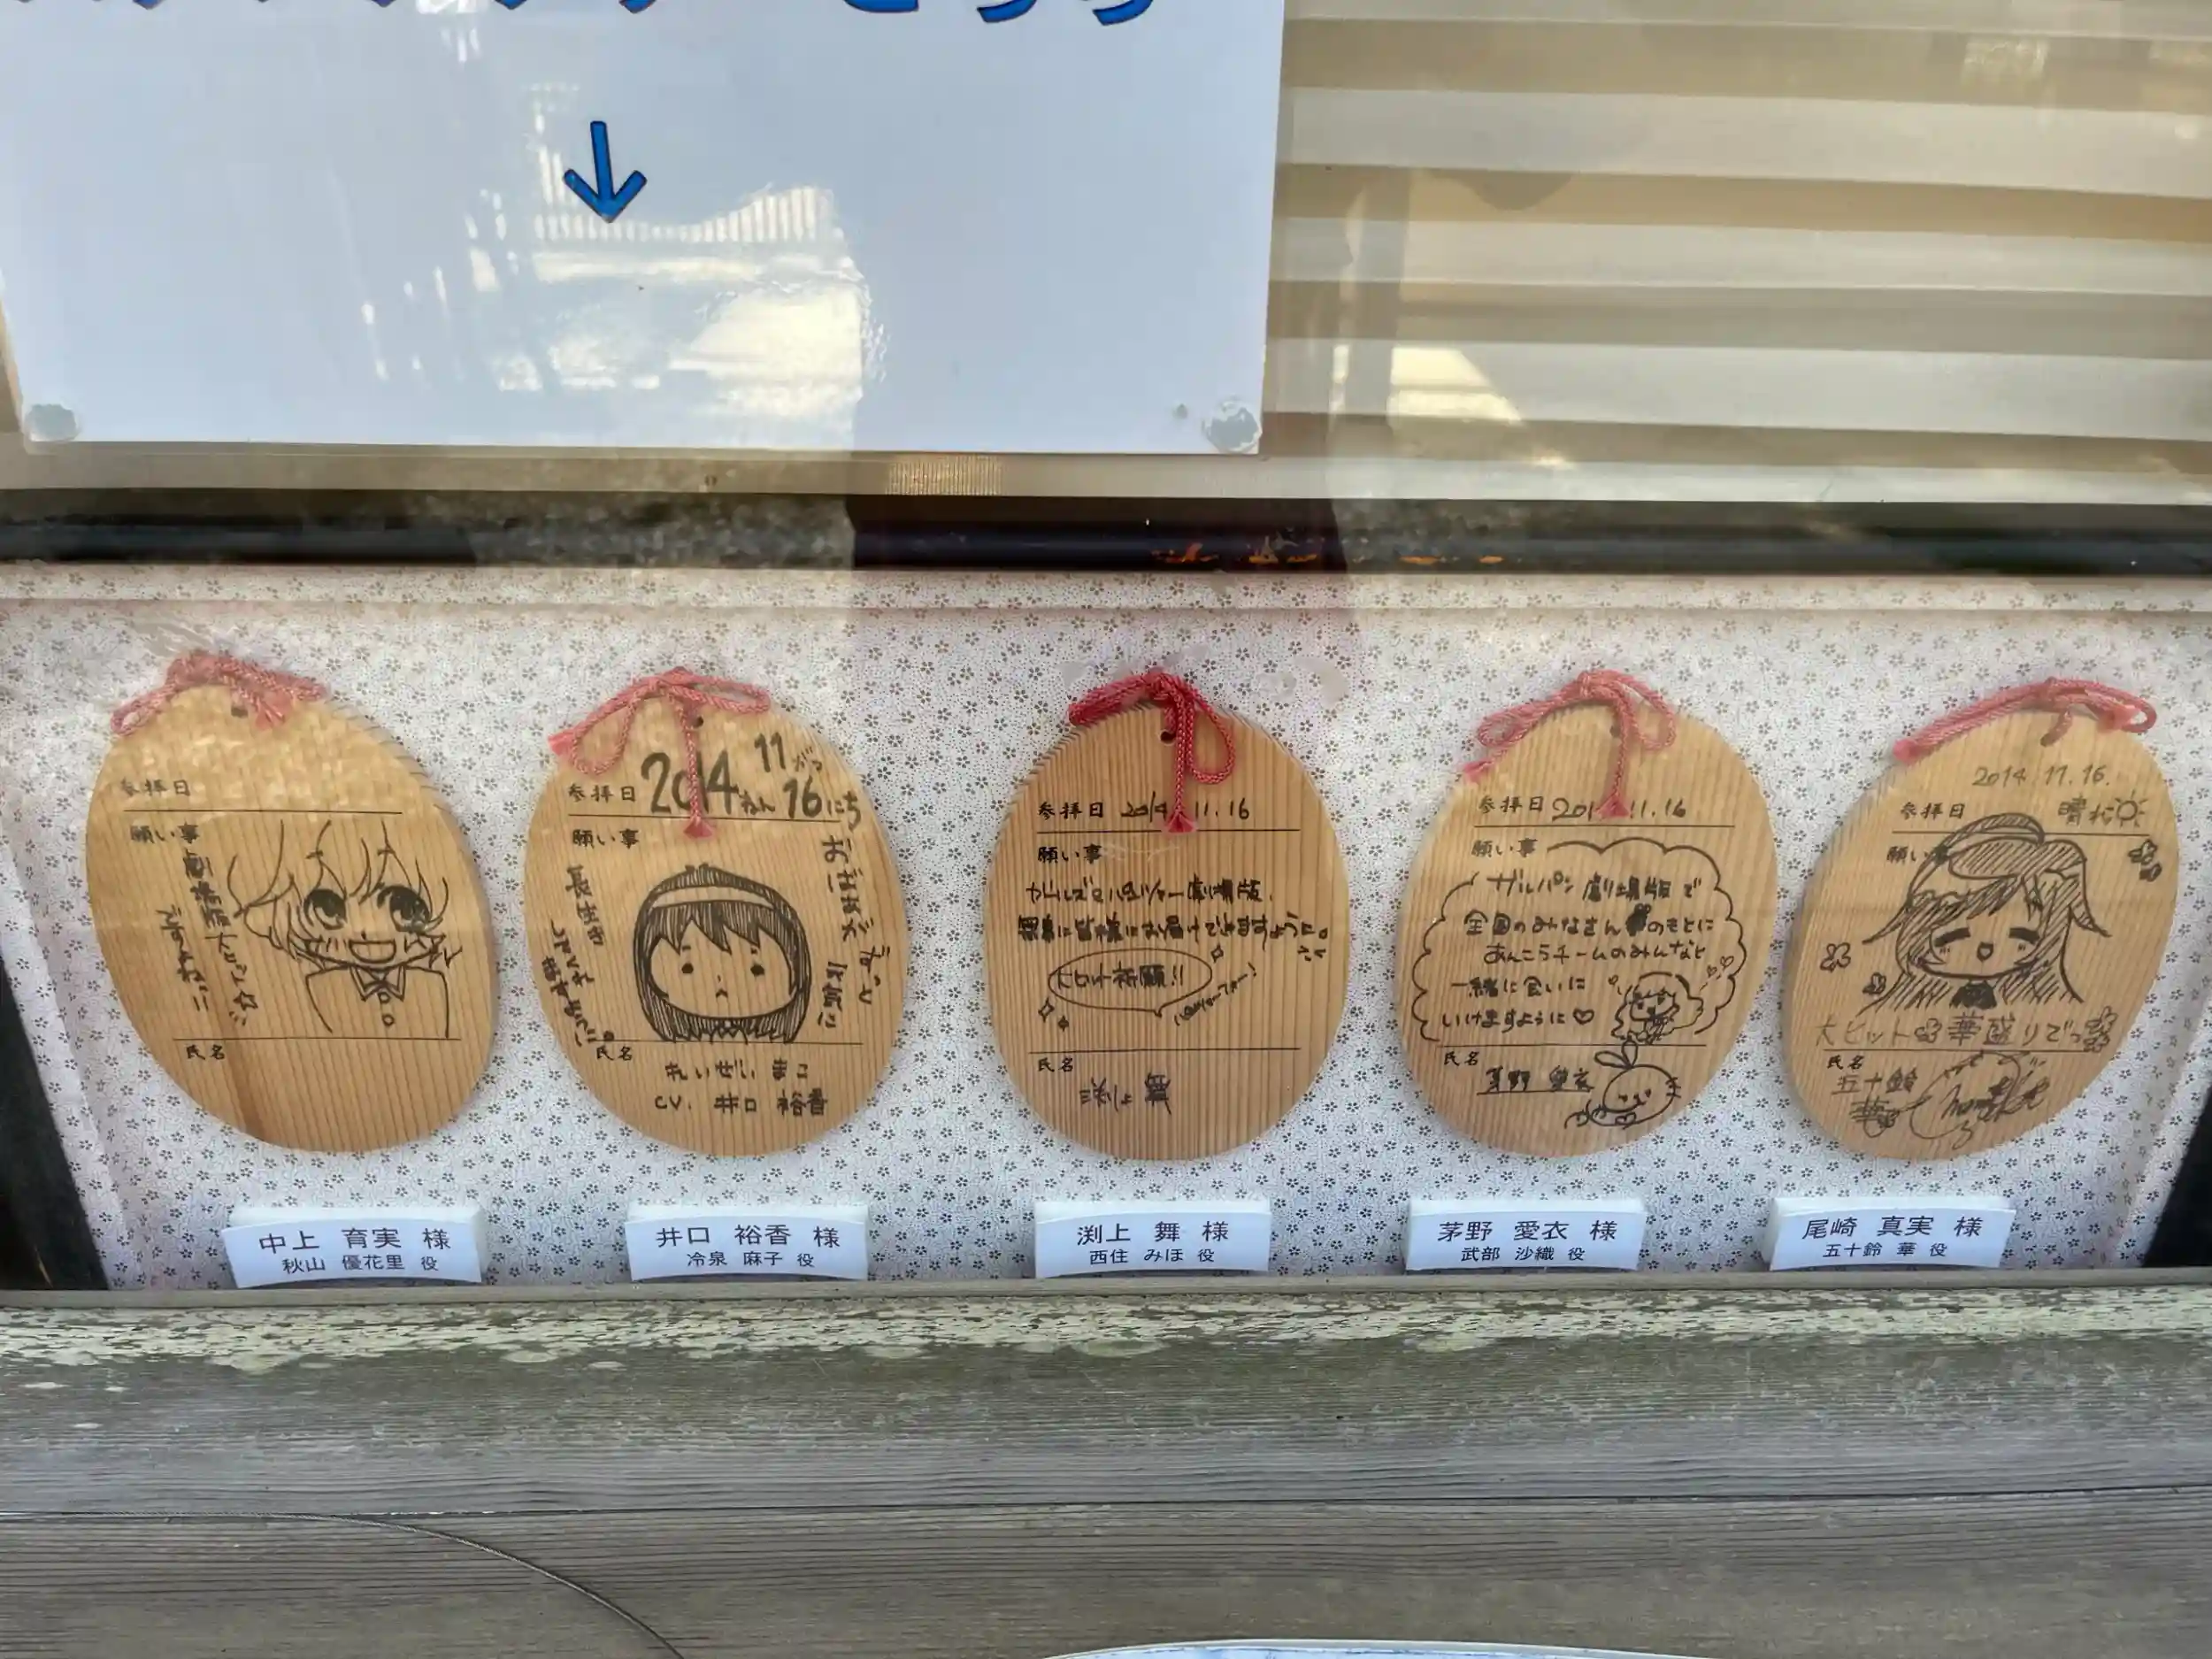 参拝日
願い事
劇場版大ヒット
氏名
中上 育実 様
秋山 優花里 役
参拝日 2014ねん 11がつ 16にち
願い事
おばぁが ずっと 元気に
長生き
氏名
れいぜい まこ
CV. 井口 裕香
井口 裕香 様
冷泉 麻子 役
参拝日 2014.11.16
願い事
ガールズ&パンツァー劇場版、
大ヒット祈願!!
氏名
渕上 舞
渕上 舞 様
西住 みほ 役
参拝日 201 .11.16
願い事
ガルパン 劇場版で
全国のみなさんのもとに
あんこうチームのみんなと
一緒に会いに
いけますように♡
氏名
茅野 愛衣
茅野 愛衣 様
武部 沙織 役
2014.11.16.
参拝日 晴れ
願い事
大ヒット 華盛りでっ
氏名
五十鈴
華
尾崎 真実 様
五十鈴 華 役